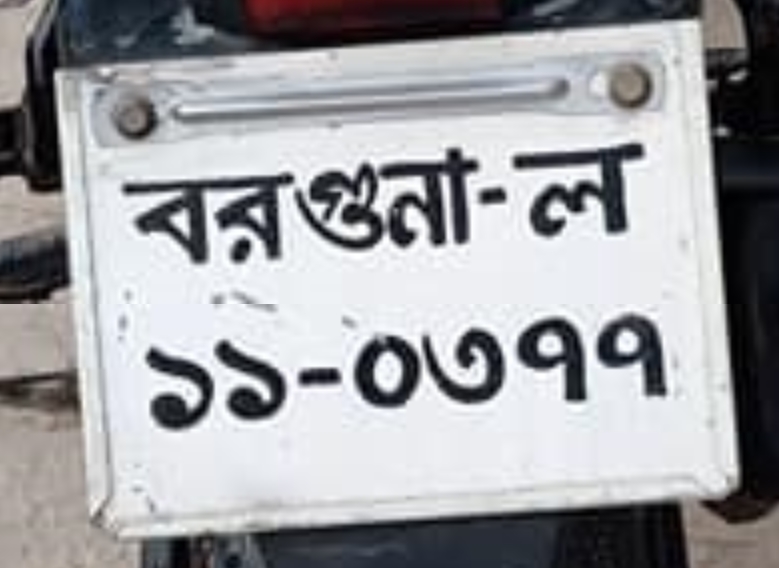 বরগুনা-ল
১১-০৩৭৭